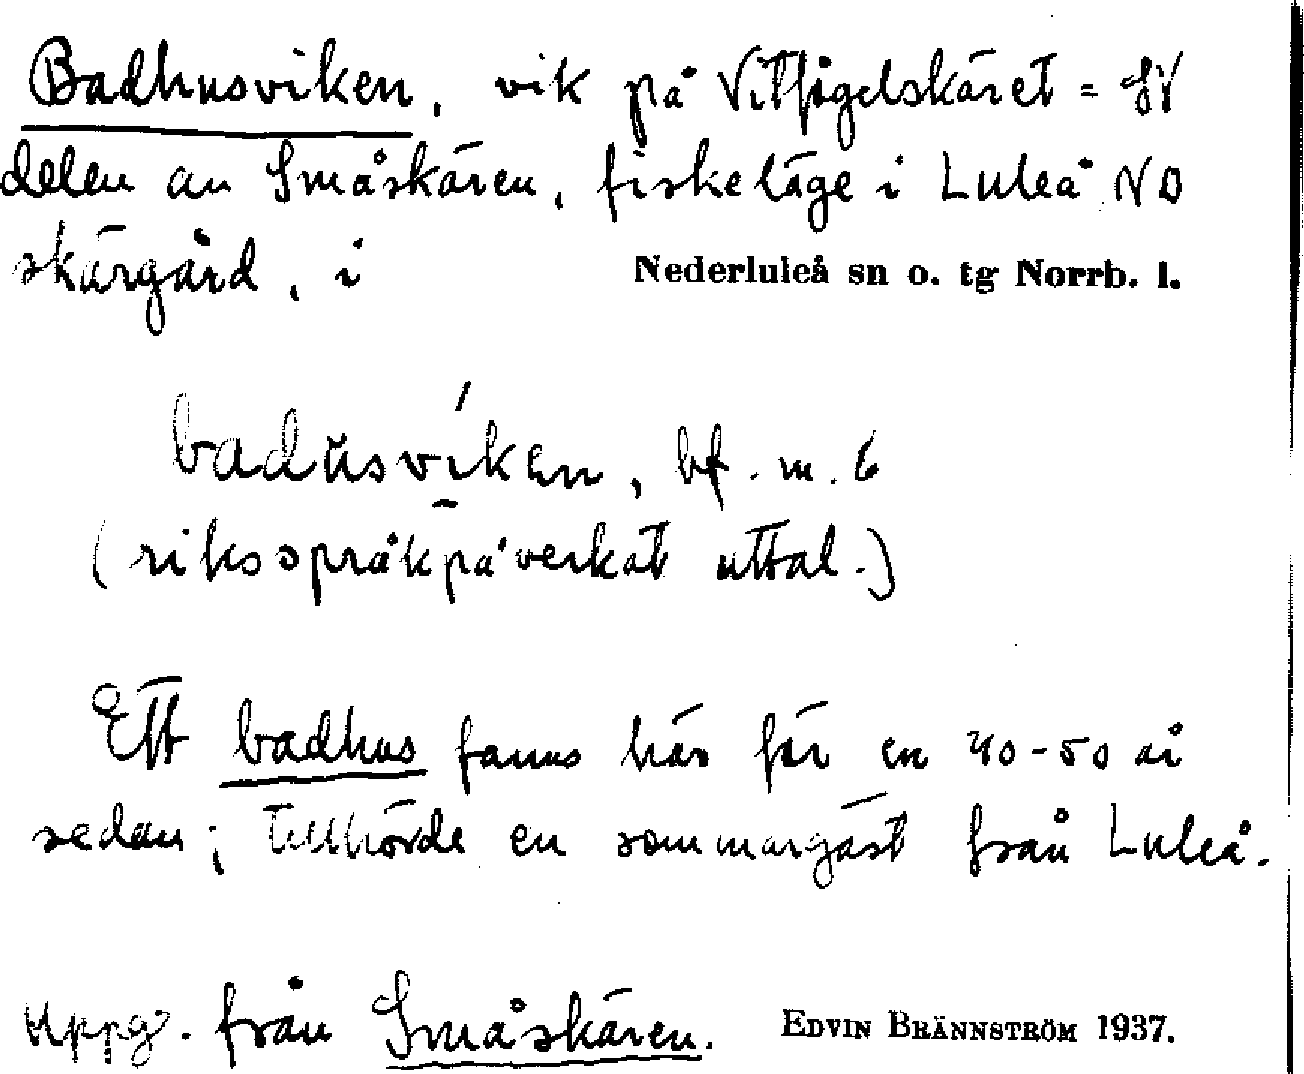 Badhusviken, vik på Vitfågelskäret = SV
delen av Småskären, fiskeläge i Luleå NO
skärgård, i Nederluleå sn o. tg Norrb. l.
badŭsvíkɛn, bf. m. 6
(riksspråkpåverkat uttal.)
Ett badhus fanns här för en 40-50 år
sedan; tillhörde en sommargäst från Luleå.
Uppg. från Småskären. EDVIN BRÄNNSTRÖM 1937.